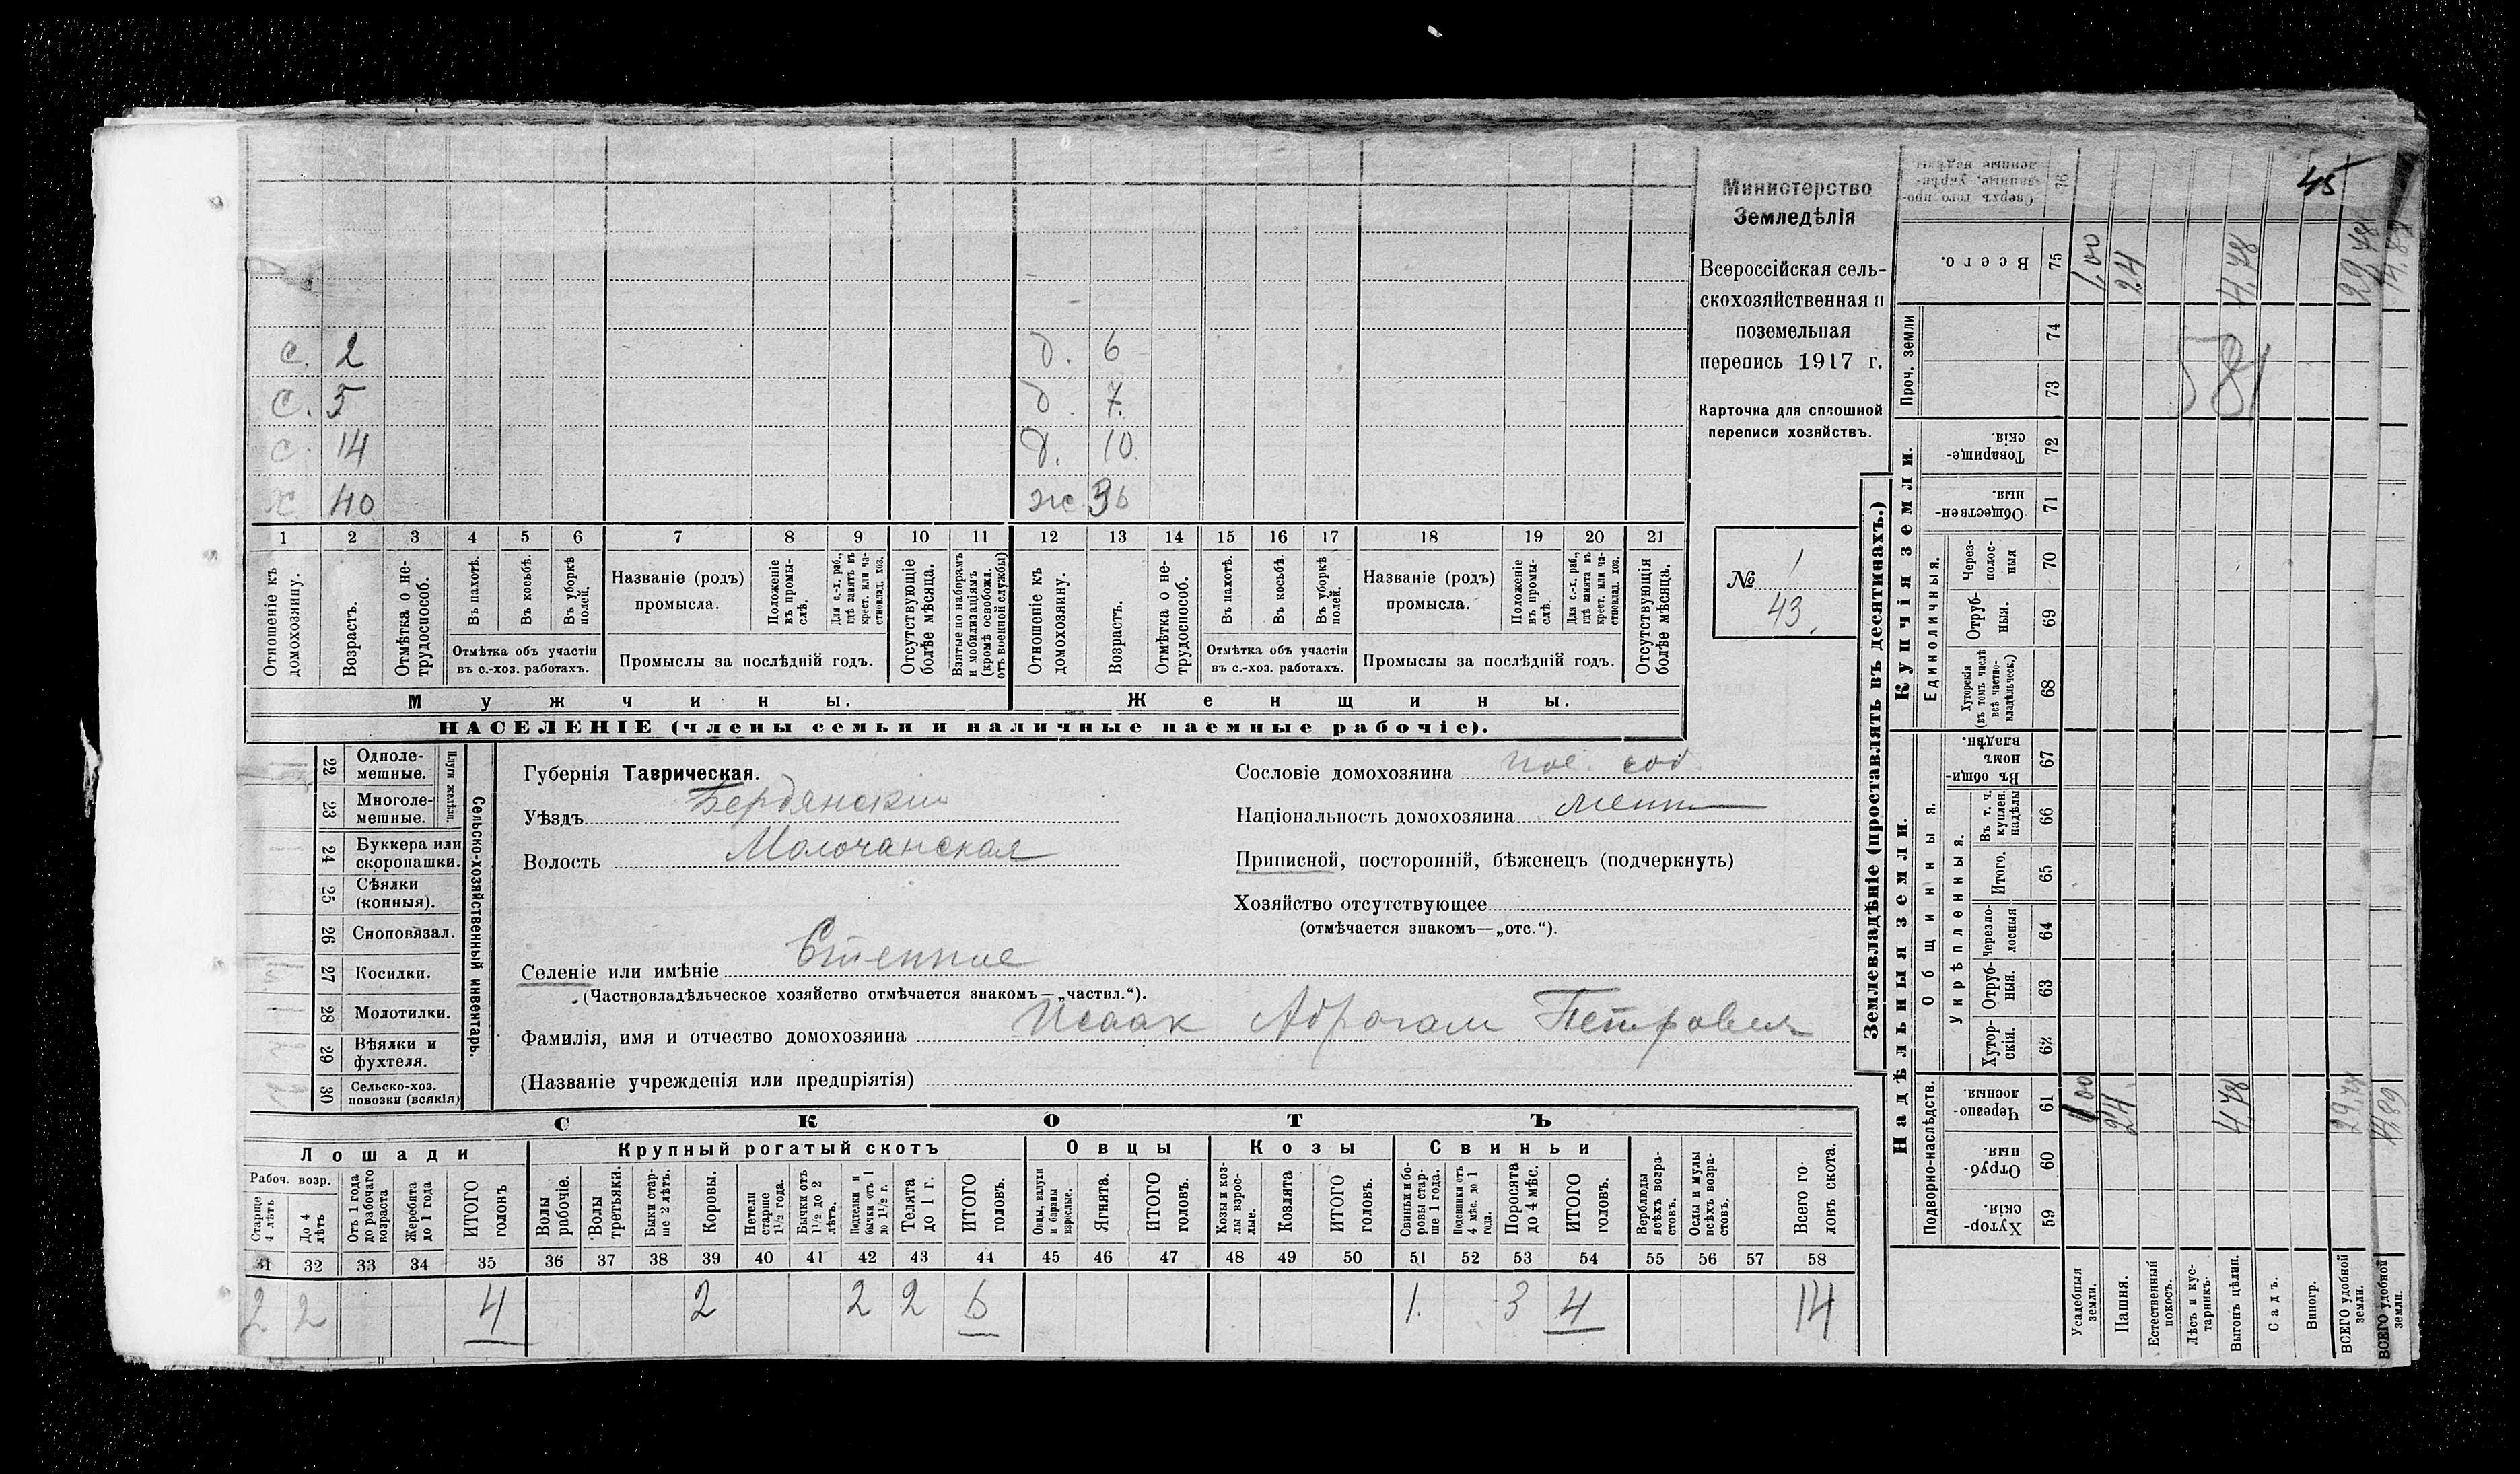 45
Министерство
Земледѣлія
Всероссійская сель-
скохозяйственная и
поземельная
перепись 1917 г.
Карточка для сплошной
переписи хозяйствъ.
№ 1
43.
с. 2 д. 6
с. 5 д. 7.
с. 14 д. 10.
х. 40 ж 36
1 2 3 4 5 6 7 8 9 10 11 12 13 14 15 16 17 18 19 20 21
Отношеніе къ домохозяину.
Возрастъ.
Отмѣтка о не-трудоспособ.
Въ пахотѣ.
Въ косьбѣ.
Въ уборкѣ полей.
Отмѣтка объ участіи
въ с.-хоз. работахъ.
Названіе (родъ)
промысла.
Положеніе въ промы-слѣ.
Для с.-х. раб., гдѣ занятъ въ крест. или ча-стновлад. хоз.
Промыслы за послѣдній годъ.
Отсутствующіе болѣе мѣсяца.
Взятые по наборамъ и мобилизаціямъ (кромѣ освобожд. отъ военной службы)
Отношеніе къ домохозяину.
Возрастъ.
Отмѣтка о не-трудоспособ.
Въ пахотѣ.
Въ косьбѣ.
Въ уборкѣ полей.
Отмѣтка объ участіи
въ с.-хоз. работахъ.
Названіе (родъ)
промысла.
Положеніе въ промы-слѣ.
Для с.-х. раб., гдѣ занята въ крест. или ча-стновлад. хоз.
Промыслы за послѣдній годъ.
Отсутствующія болѣе мѣсяца.
Мужчины. Женщины.
НАСЕЛЕНІЕ (члены семьи и наличные наемные рабочіе).
Сельско-хозяйственный инвентарь.
Плуги желѣзн.
22 Одноле-мешные.
23 Многоле-мешные.
24 Буккера или скоропашки.
25 Сѣялки (конныя).
26 Сноповязал.
27 Косилки.
28 Молотилки.
29 Вѣялки и фухтеля.
30 Сельско-хоз. повозки (всякія)
Губернія Таврическая.
Уѣздъ Бердянский
Волость Молочанская
Селеніе или имѣніе Степное
(Частновладѣльческое хозяйство отмѣчается знакомъ—„частвл.“).
Фамилія, имя и отчество домохозяина Исаак Абрагам Петрович
(Названіе учрежденія или предпріятія)
Сословіе домохозяина пос. соб.
Національность домохозяина менн
Приписной, посторонній, бѣженецъ (подчеркнуть)
Хозяйство отсутствующее
(отмѣчается знакомъ—„отс.“).
СКОТЪ
Лошади Крупный рогатый скотъ Овцы Козы Свиньи
Рабоч. возр.
Старше 4 лѣтъ
До 4 лѣтъ
Отъ 1 года до рабочаго возраста
Жеребята до 1 года
ИТОГО головъ
Волы рабочіе.
Волы третьяки.
Быки стар-ше 2 лѣтъ.
Коровы.
Нетели старше 1½ года.
Бычки отъ 1½ до 2 лѣтъ.
Подтелки и бычки отъ 1 до 1½ г.
Телята до 1 г.
ИТОГО головъ.
Овцы, валухи и бараны взрослые.
Ягнята.
ИТОГО головъ.
Козы и коз-лы взрос-лые.
Козлята
ИТОГО головъ.
Свиньи и бо-ровы стар-ше 1 года.
Подсвинки отъ 4 мѣс. до 1 года.
Поросята до 4 мѣс.
ИТОГО головъ.
Верблюды всѣхъ возра-стовъ.
Ослы и мулы всѣхъ возра-стовъ.
Всего го-ловъ скота.
31 32 33 34 35 36 37 38 39 40 41 42 43 44 45 46 47 48 49 50 51 52 53 54 55 56 57 58
2 2 4 2 2 2 6 1. 3 4 14
Землевладѣніе (проставлять въ десятинахъ.)
Надѣльныя земли.
Купчія земли.
Проч. земли
Подворно-наслѣдств.
Общинныя.
Укрѣпленныя.
Единоличныя.
Сверхъ того про-данные, укрѣп-ленные надѣлы 76
Всего. 75
74
73
Товарище-скія 72
Обществен-ныя. 71
Через-полос-ныя 70
Отруб-ныя. 69
Хуторскія (въ томъ числѣ всѣ частно-владѣльческ.) 68
Въ общин-номъ владѣн. 67
Въ т. ч. куплен. надѣлы 66
Итого. 65
Черезпо-лосныя 64
Отруб-ныя. 63
Хутор-скія. 62
Черезпо-лосныя. 61
Отруб-ныя. 60
Хутор-скія. 59
Усадебныя земли.
Пашня.
Естественный покосъ.
Лѣсъ и кус-тарникъ.
Выгонъ цѣлин.
Садъ.
Виногр.
ВСЕГО удобной земли.
ВСЕГО удобной земли.
1,00 24 4,78 29,78
581
1,00 24. 4,78 29,78 4,89